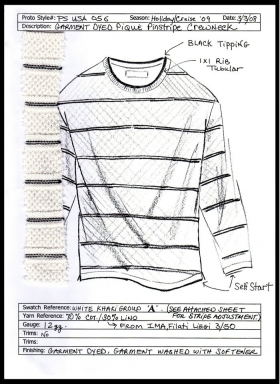 Proto Style#: PS USA 056 Season: Holiday/Cruise '09 Date: 3/3/08
Description: GARMENT DYED Pique Pinstripe Crewneck
BLACK Tipping
1X1 Rib
Tubular
Self Start
Swatch Reference: WHITE KHAKI GROUP "A". (SEE ATTACHED SHEET
FOR STRIPE ADJUSTMENT)
Yarn Reference: 70% COT./30% LINO
Gauge: 12gg. FROM IMA, Filati 3/50
Trims: No
Trims:
Finishing: GARMENT DYED, GARMENT WASHED WITH SOFTENER